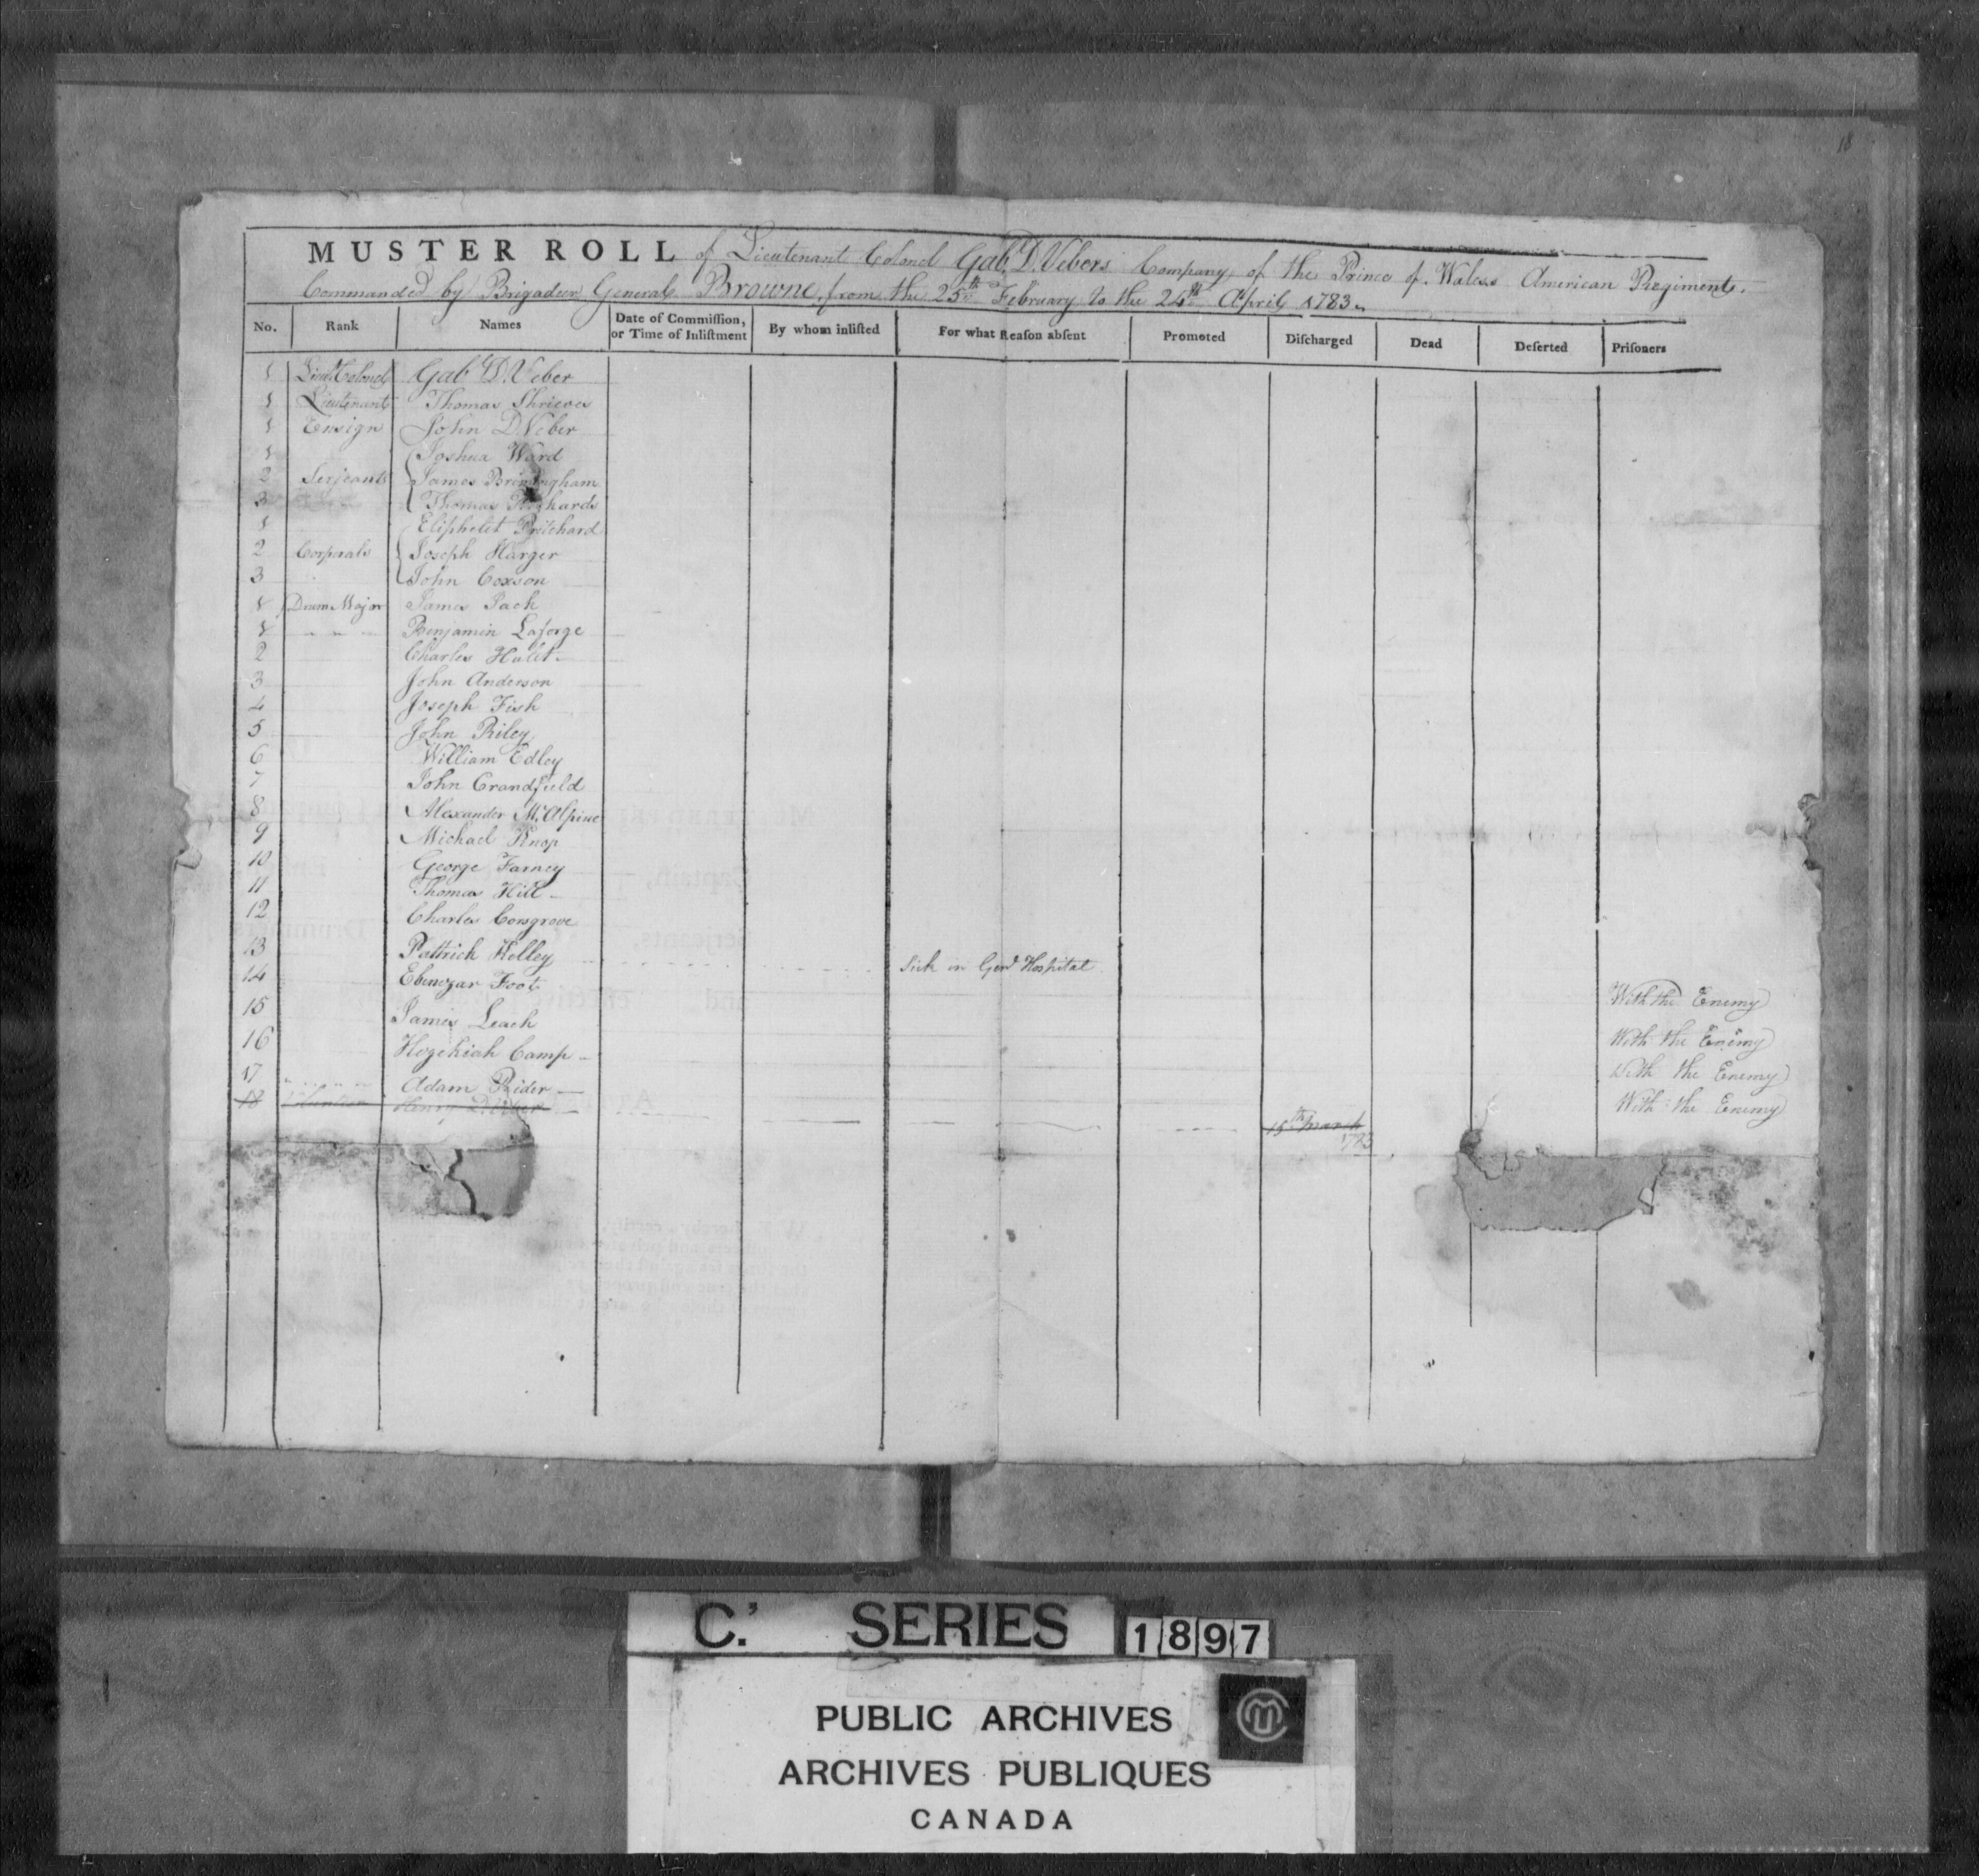 18
MUSTER ROLL of Lieutenant Colonel Gab. D. Vebers Company, of the Prince of Wales's American Regiment.
Commanded by Brigadier General Browne, from the 25th February to the 24th April 1783.
No. Rank Names Date of Commiſſion, or Time of Inliſtment By whom inliſted For what Reaſon abſent Promoted Diſcharged Dead Deſerted Priſoners
1 Lieut Colonel Gabl D. Veber
1 Lieutenant Thomas Shrieves
1 Ensign John D. Veber
1 Joshua Ward
2 Serjeants James Brimingham
3 Thomas Richards
1 Eliphelet Pritchard
2 Corporals Joseph Harger
3 John Coxson
1 Drum Major James Pack
1 Benjamin Laforge
2 Charles Hulet
3 John Anderson
4 Joseph Fish
5 John Riley
6 William Edley
7 John Crandfield
8 Alexander McAlpine
9 Michael Knap
10 George Farney
11 Thomas Hill
12 Charles Corsgrove
13 Pattrick Kelley Sick in Genl Hospital
14 Ebenezar Foot With the Enemy
15 James Leach With the Enemy
16 Hezekiah Camp With the Enemy
17 Adam Rider With the Enemy
18 Henry D. Veber 15th March 1783
C.' SERIES 1897
PUBLIC ARCHIVES
ARCHIVES PUBLIQUES
CANADA